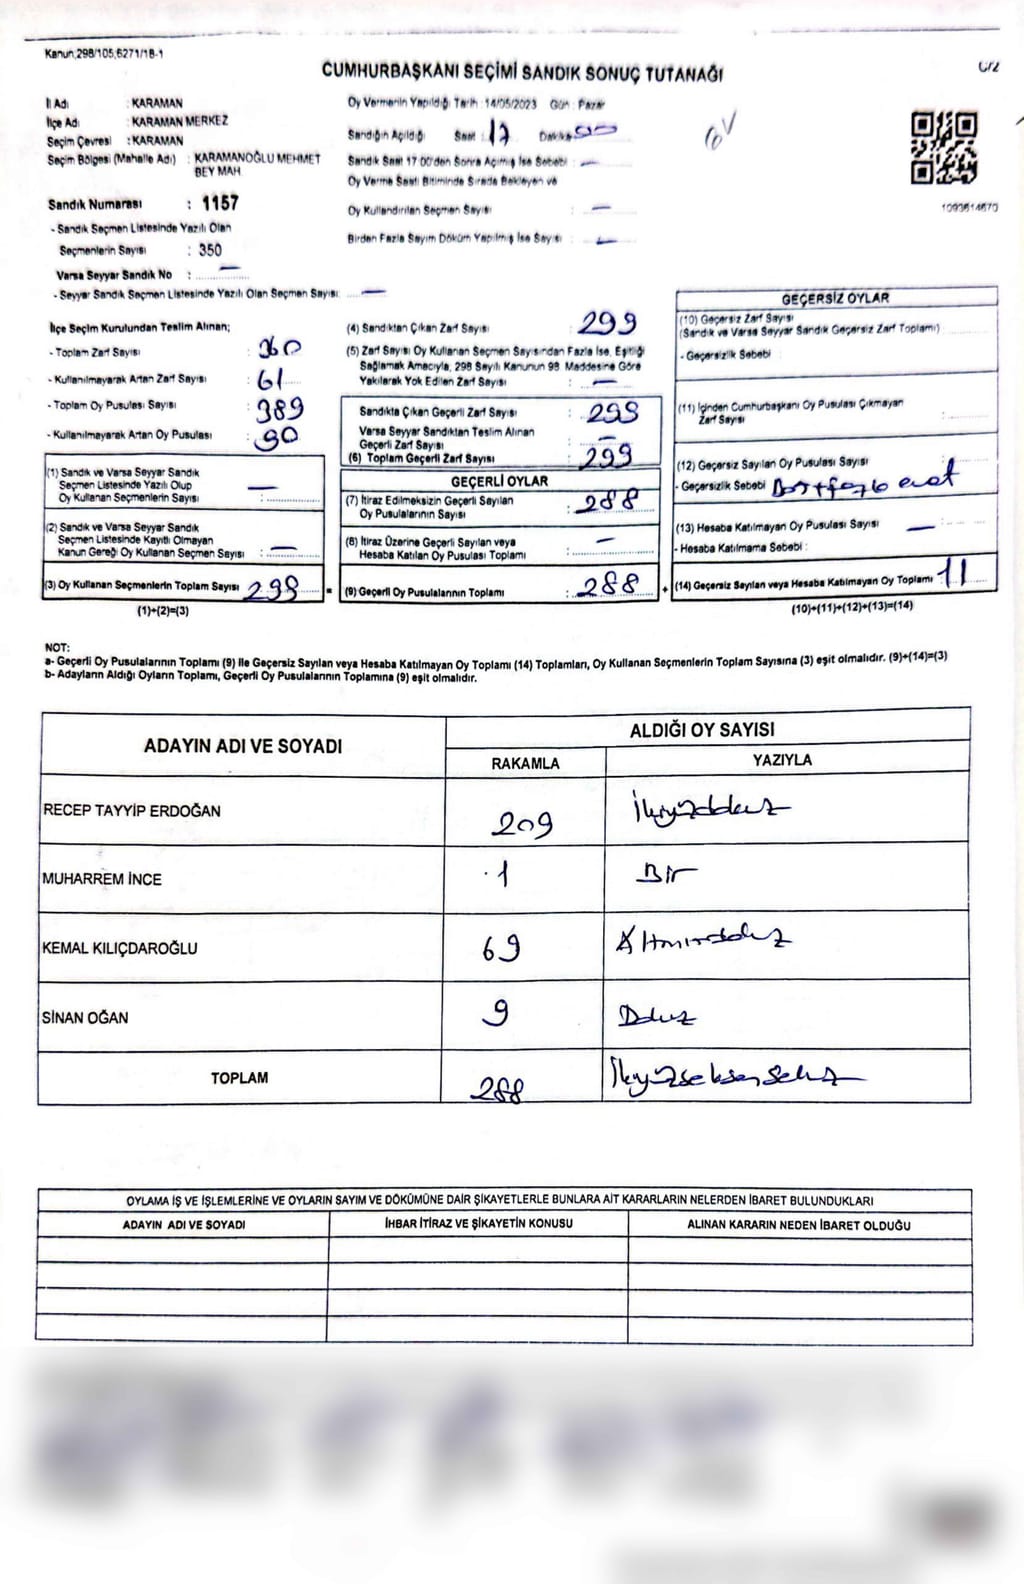 Kanun;298/105,6271/18-1
CUMHURBAŞKANI SEÇİMİ SANDIK SONUÇ TUTANAĞI
İl Adı : KARAMAN
İlçe Adı : KARAMAN MERKEZ
Seçim Çevresi : KARAMAN
Seçim Bölgesi (Mahalle Adı) : KARAMANOĞLU MEHMET
BEY MAH
Sandık Numarası : 1157
- Sandık Seçmen Listesinde Yazılı Olan
Seçmenlerin Sayısı : 350
Varsa Seyyar Sandık No : —
- Seyyar Sandık Seçmen Listesinde Yazılı Olan Seçmen Sayısı: —
Oy Vermenin Yapıldığı Tarih :14/05/2023 Gün : Pazar
Sandığın Açıldığı Saat : 17 Dakika
Sandık Saat 17:00'den Sonra Açılmış İse Sebebi : —
Oy Verme Saati Bitiminde Sırada Bekleyen ve
Oy Kullandırılan Seçmen Sayısı : —
Birden Fazla Sayım Döküm Yapılmış İse Sayısı : —
1093614670
İlçe Seçim Kurulundan Teslim Alınan;
- Toplam Zarf Sayısı : 360
- Kullanılmayarak Artan Zarf Sayısı : 61
- Toplam Oy Pusulası Sayısı : 389
- Kullanılmayarak Artan Oy Pusulası : 90
(1) Sandık ve Varsa Seyyar Sandık
Seçmen Listesinde Yazılı Olup
Oy Kullanan Seçmenlerin Sayısı : —
(2) Sandık ve Varsa Seyyar Sandık
Seçmen Listesinde Kayıtlı Olmayan
Kanun Gereği Oy Kullanan Seçmen Sayısı : —
(3) Oy Kullanan Seçmenlerin Toplam Sayısı 299 =
(1)+(2)=(3)
(4) Sandıktan Çıkan Zarf Sayısı : 299
(5) Zarf Sayısı Oy Kullanan Seçmen Sayısından Fazla İse, Eşitliği
Sağlamak Amacıyla, 298 Sayılı Kanunun 98. Maddesine Göre
Yakılarak Yok Edilen Zarf Sayısı : —
Sandıkta Çıkan Geçerli Zarf Sayısı : 299
Varsa Seyyar Sandıktan Teslim Alınan
Geçerli Zarf Sayısı : —
(6) Toplam Geçerli Zarf Sayısı : 299
GEÇERLİ OYLAR
(7) İtiraz Edilmeksizin Geçerli Sayılan
Oy Pusulalarının Sayısı : 288
(8) İtiraz Üzerine Geçerli Sayılan veya
Hesaba Katılan Oy Pusulası Toplamı : —
(9) Geçerli Oy Pusulalarının Toplamı : 288 +
GEÇERSİZ OYLAR
(10) Geçersiz Zarf Sayısı
(Sandık ve Varsa Seyyar Sandık Geçersiz Zarf Toplamı)
- Geçersizlik Sebebi :
(11) İçinden Cumhurbaşkanı Oy Pusulası Çıkmayan
Zarf Sayısı :
(12) Geçersiz Sayılan Oy Pusulası Sayısı :
- Geçersizlik Sebebi
(13) Hesaba Katılmayan Oy Pusulası Sayısı : —
- Hesaba Katılmama Sebebi :
(14) Geçersiz Sayılan veya Hesaba Katılmayan Oy Toplamı : 11
(10)+(11)+(12)+(13)=(14)
NOT:
a- Geçerli Oy Pusulalarının Toplamı (9) ile Geçersiz Sayılan veya Hesaba Katılmayan Oy Toplamı (14) Toplamları, Oy Kullanan Seçmenlerin Toplam Sayısına (3) eşit olmalıdır. (9)+(14)=(3)
b- Adayların Aldığı Oyların Toplamı, Geçerli Oy Pusulalarının Toplamına (9) eşit olmalıdır.
ADAYIN ADI VE SOYADI ALDIĞI OY SAYISI
RAKAMLA YAZIYLA
RECEP TAYYİP ERDOĞAN 209 İkiyüzdokuz
MUHARREM İNCE 1 Bir
KEMAL KILIÇDAROĞLU 69 Altmışdokuz
SİNAN OĞAN 9 Dokuz
TOPLAM 288 İkiyüzseksensekiz
OYLAMA İŞ VE İŞLEMLERİNE VE OYLARIN SAYIM VE DÖKÜMÜNE DAİR ŞİKAYETLERLE BUNLARA AİT KARARLARIN NELERDEN İBARET BULUNDUKLARI
ADAYIN ADI VE SOYADI İHBAR İTİRAZ VE ŞİKAYETİN KONUSU ALINAN KARARIN NEDEN İBARET OLDUĞU